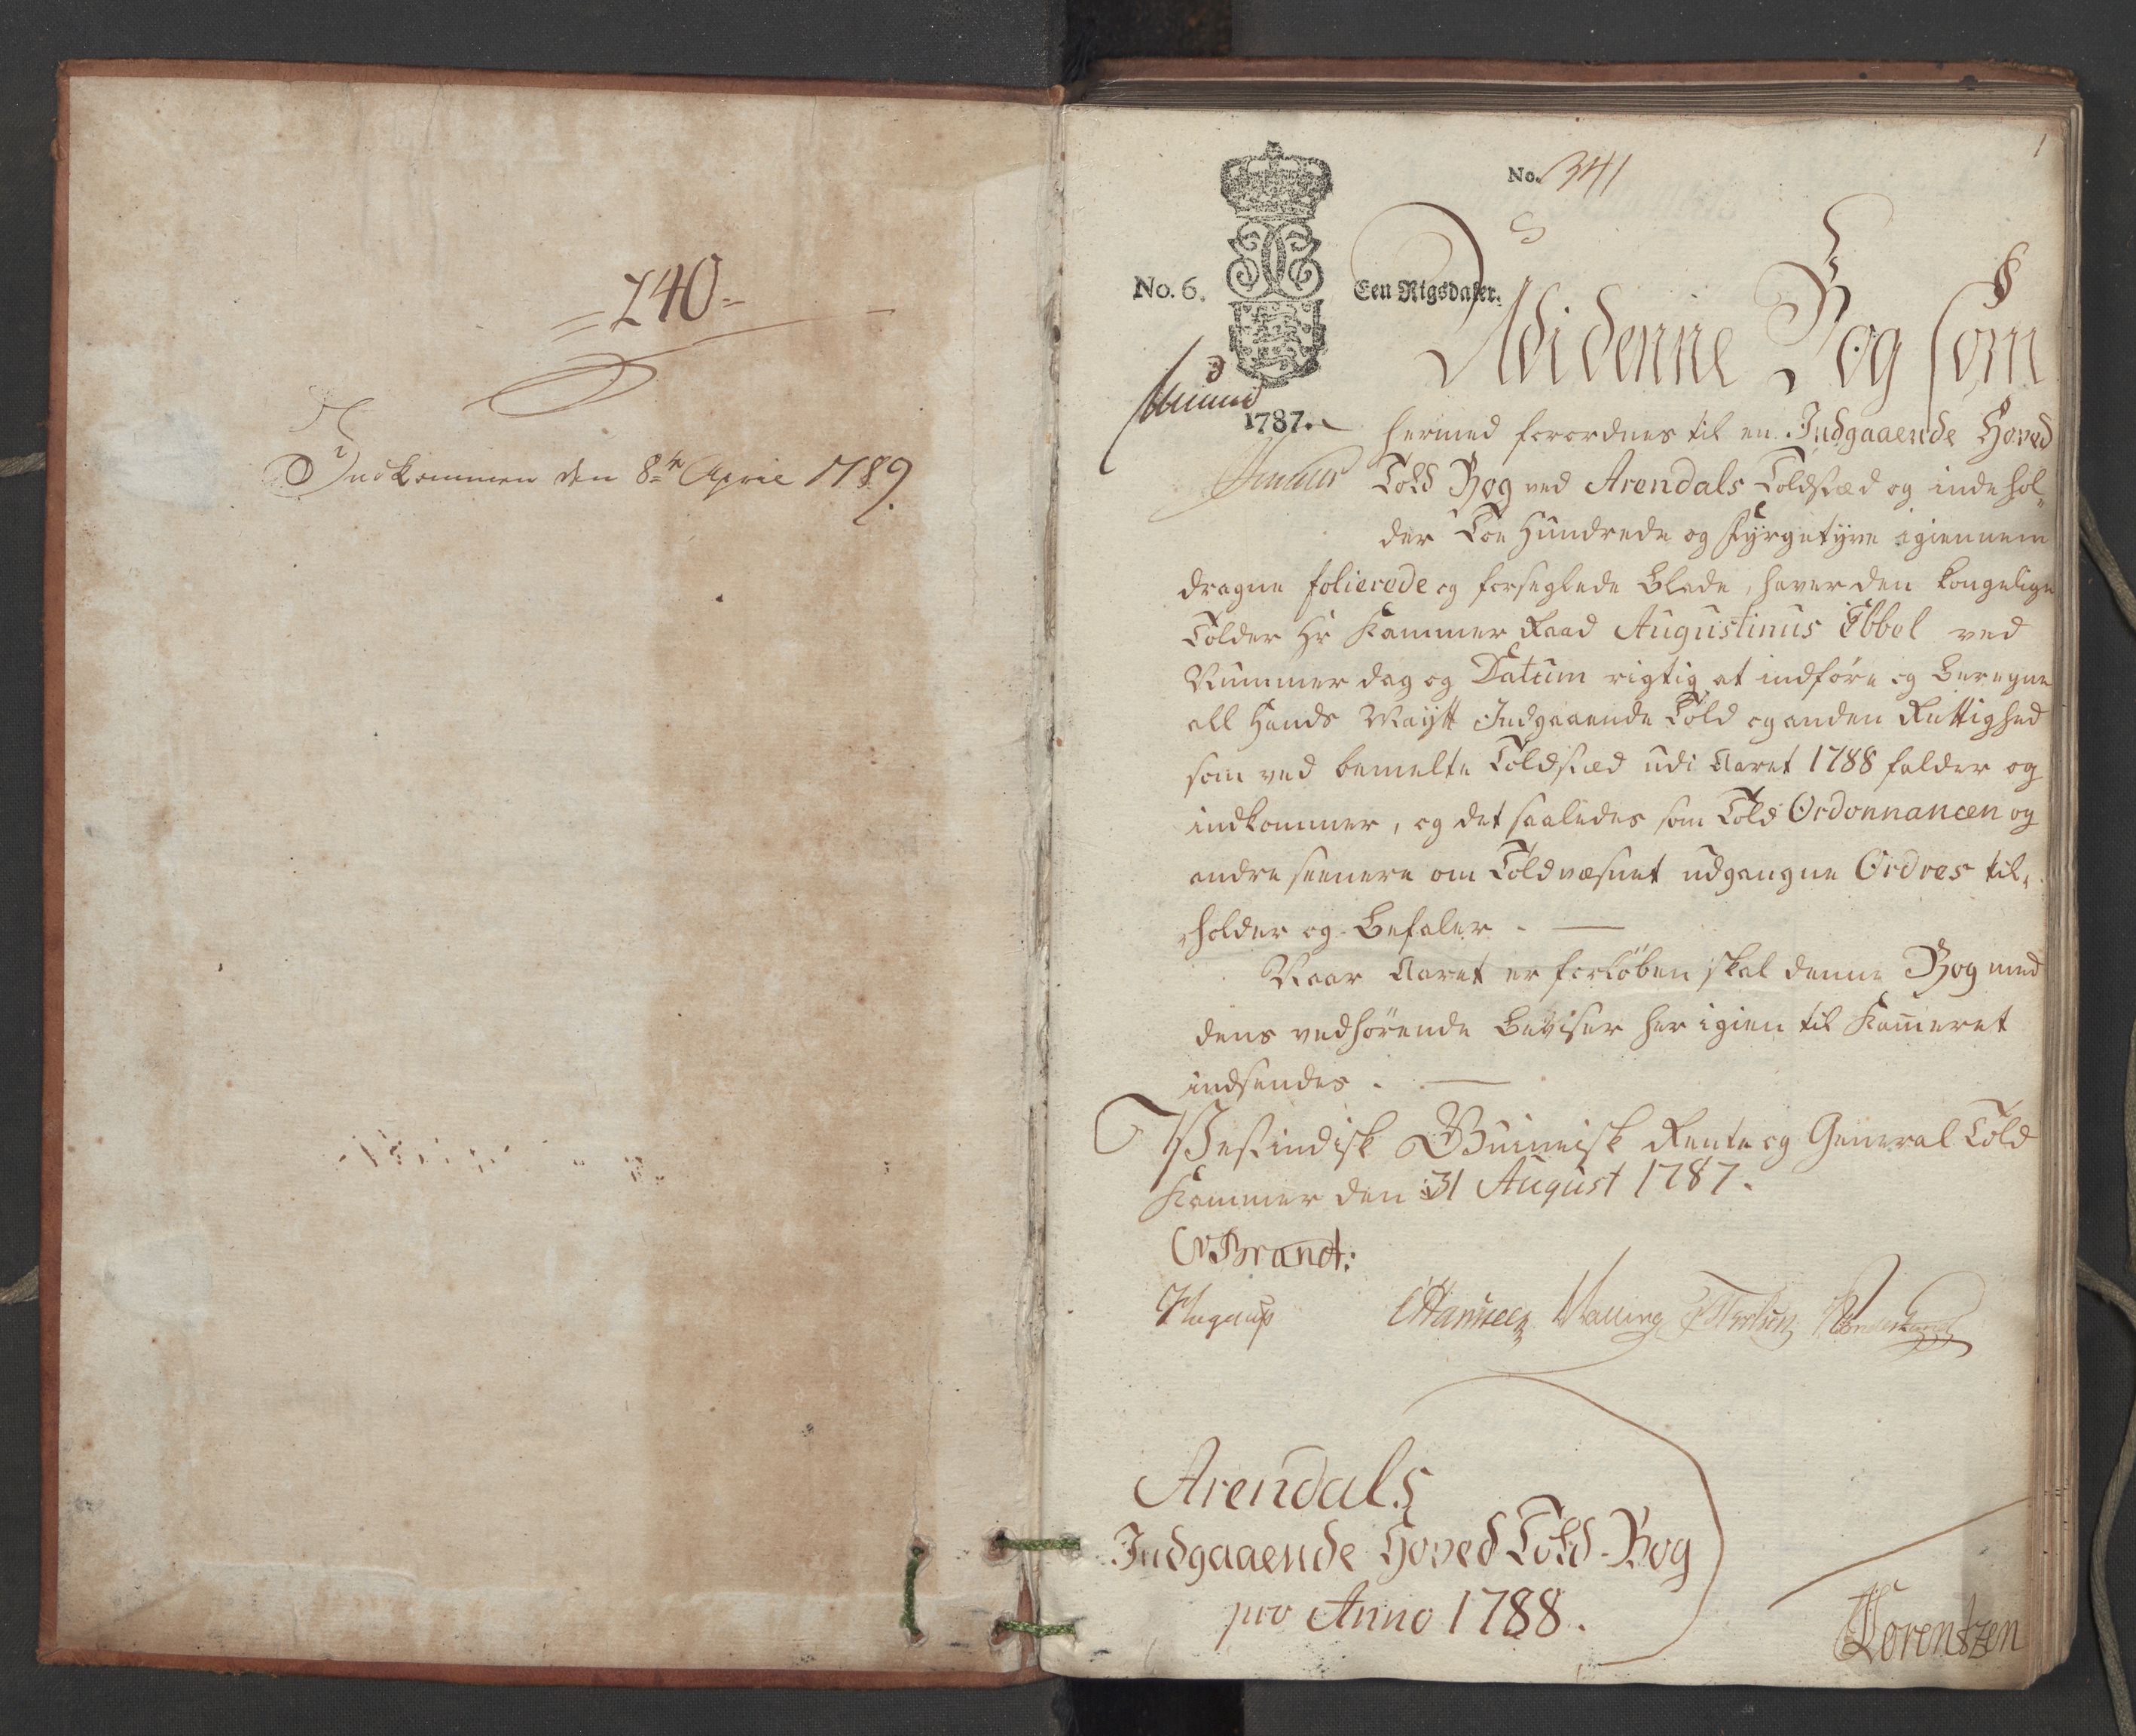 = 240 =
Indkommen den 8de April 1789.
1
No. 341
No. 6.
Een Rigsdaler.
1787.
Udi denne Bog som
hermed forordnes til en Indgaaende Hoved
Told Bog ved Arendals Toldsted og indehol-
der Toe Hundrede og Fyrgetyve igiennem
dragne folierede og forseglede Blade, haver den Kongelige
Tolder Hr Kammer Raad Augustinus Ebbel ved
Nummer dag og Datum rigtig at indføre og Beregne
all Hands Maytt Indgaaende Told og anden Rettighed
som ved bemelte Toldsted udi Aaret 1788 falder og
indkommer, og det saaledes som Told Ordonnancen og
andre seenere om Toldvæsnet udgangne Ordres til-
holder og Befaler.
Naar Aaret er forløben skal denne Bog med
dens vedhørende Beviser her igien til Kammeret
indsendes.
Vestindisk Guineisk Rente og General Told
Kammer den 31 August 1787.
CBrandt:
Arendals
Indgaaende Hoved Told-Bog
pro Anno 1788.
Lorentzen